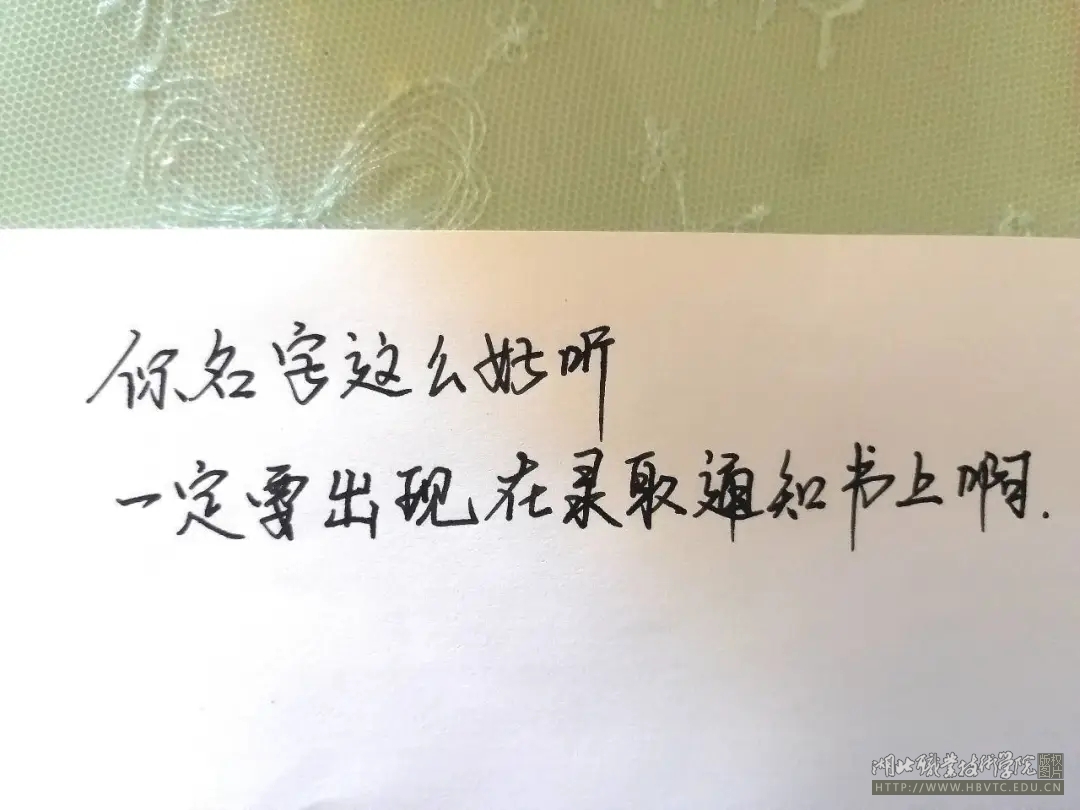 你名字这么好听
一定要出现在录取通知书上啊.
湖北职业技术学院 版权图片
HTTP://WWW.HBVTC.EDU.CN